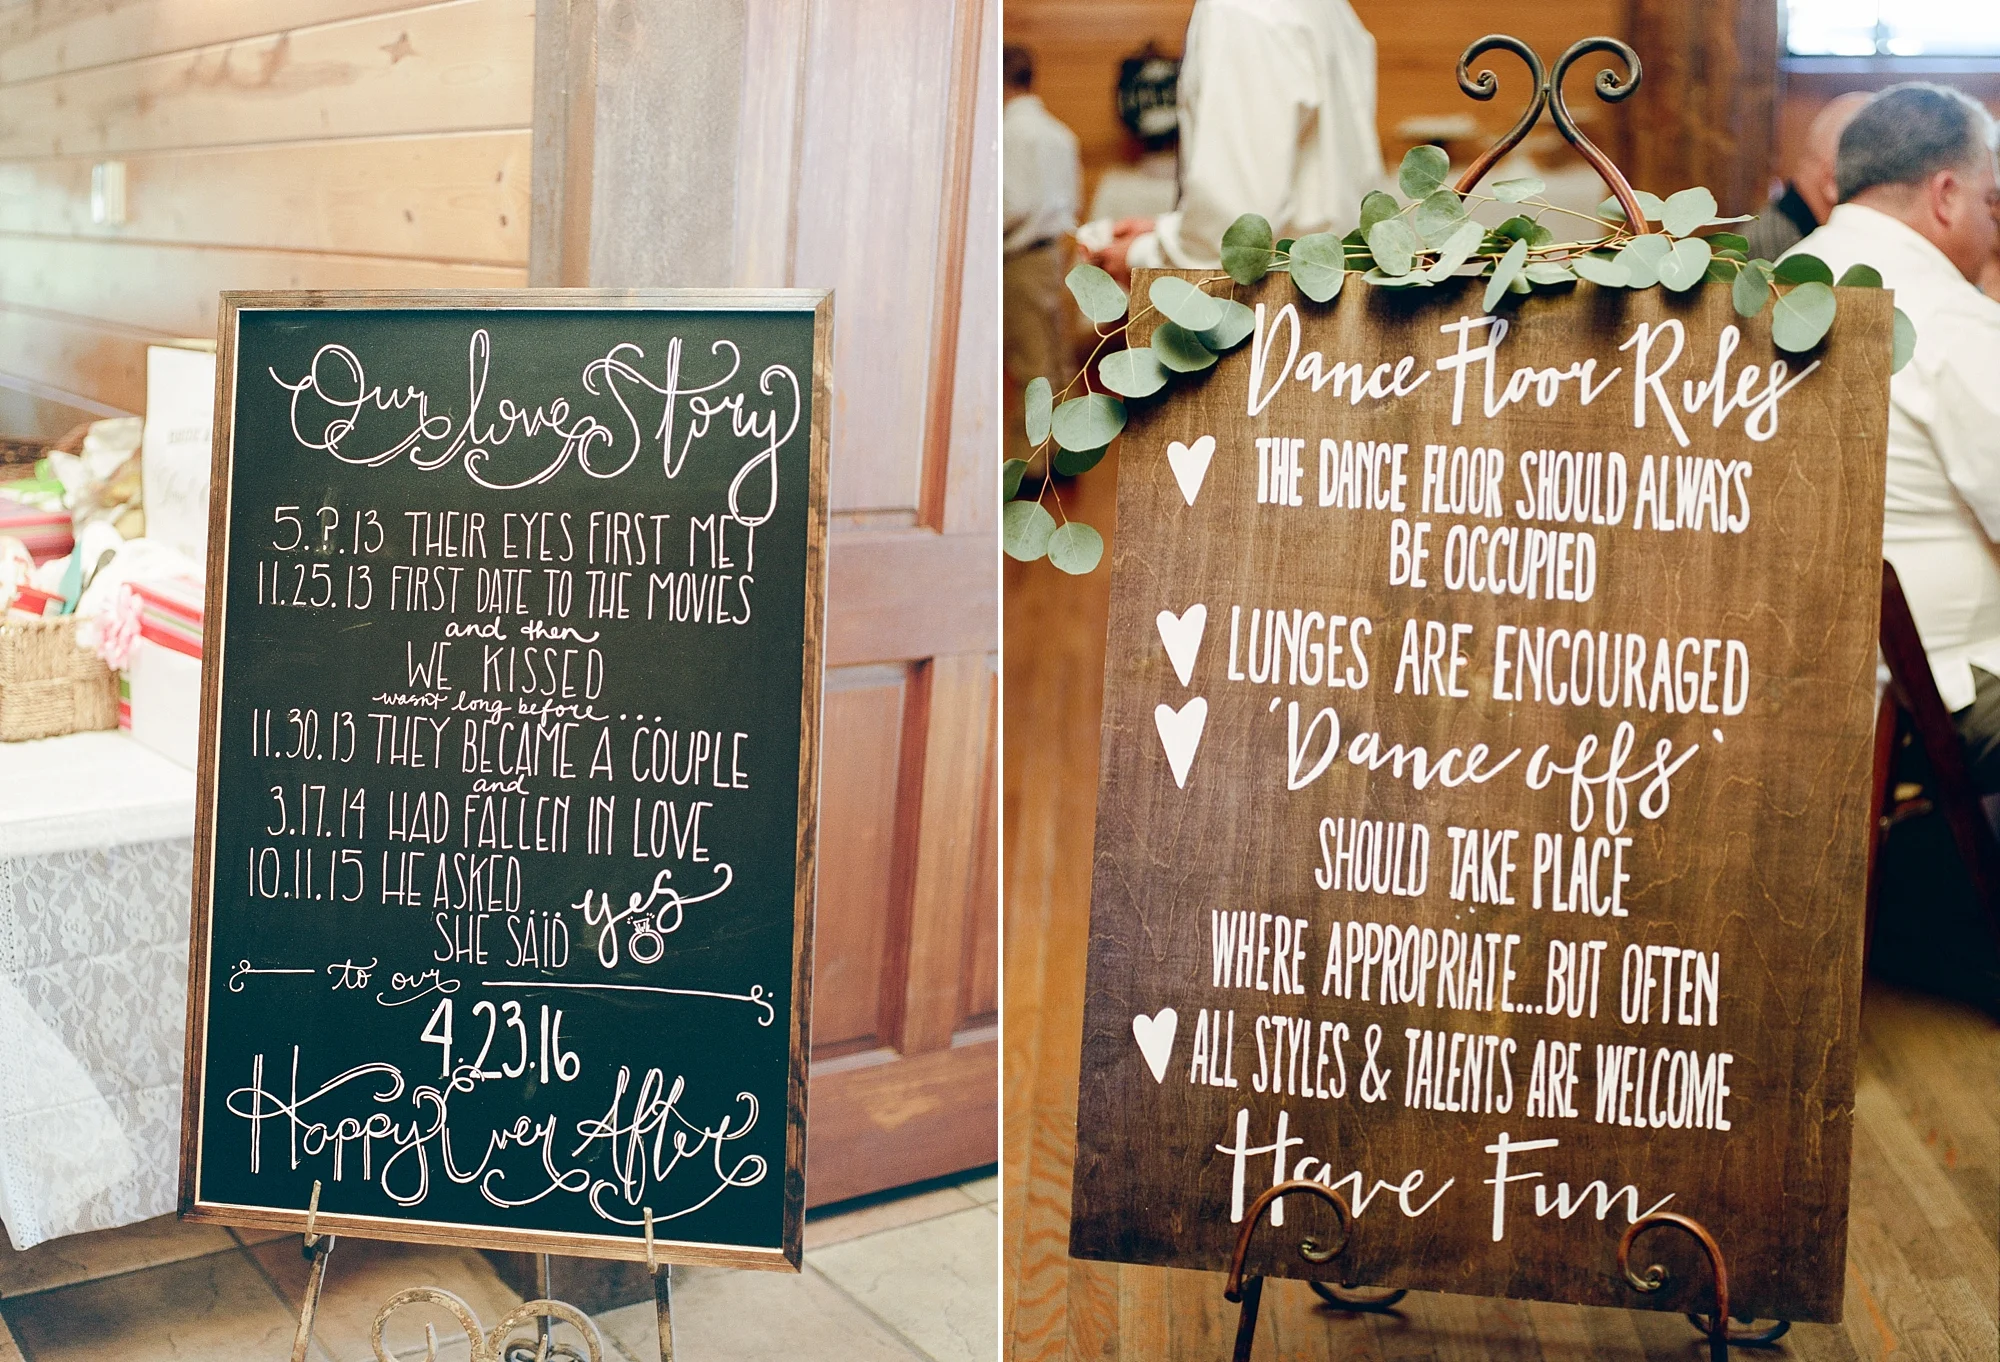 Our love Story
5.?.13 THEIR EYES FIRST MET
11.25.13 FIRST DATE TO THE MOVIES
and then
WE KISSED
wasn't long before...
11.30.13 THEY BECAME A COUPLE
and
3.17.14 HAD FALLEN IN LOVE
10.11.15 HE ASKED...
SHE SAID yes
to our
4.23.16
Happy Ever After
Dance Floor Rules
THE DANCE FLOOR SHOULD ALWAYS
BE OCCUPIED
LUNGES ARE ENCOURAGED
'Dance offs'
SHOULD TAKE PLACE
WHERE APPROPRIATE...BUT OFTEN
ALL STYLES & TALENTS ARE WELCOME
Have Fun